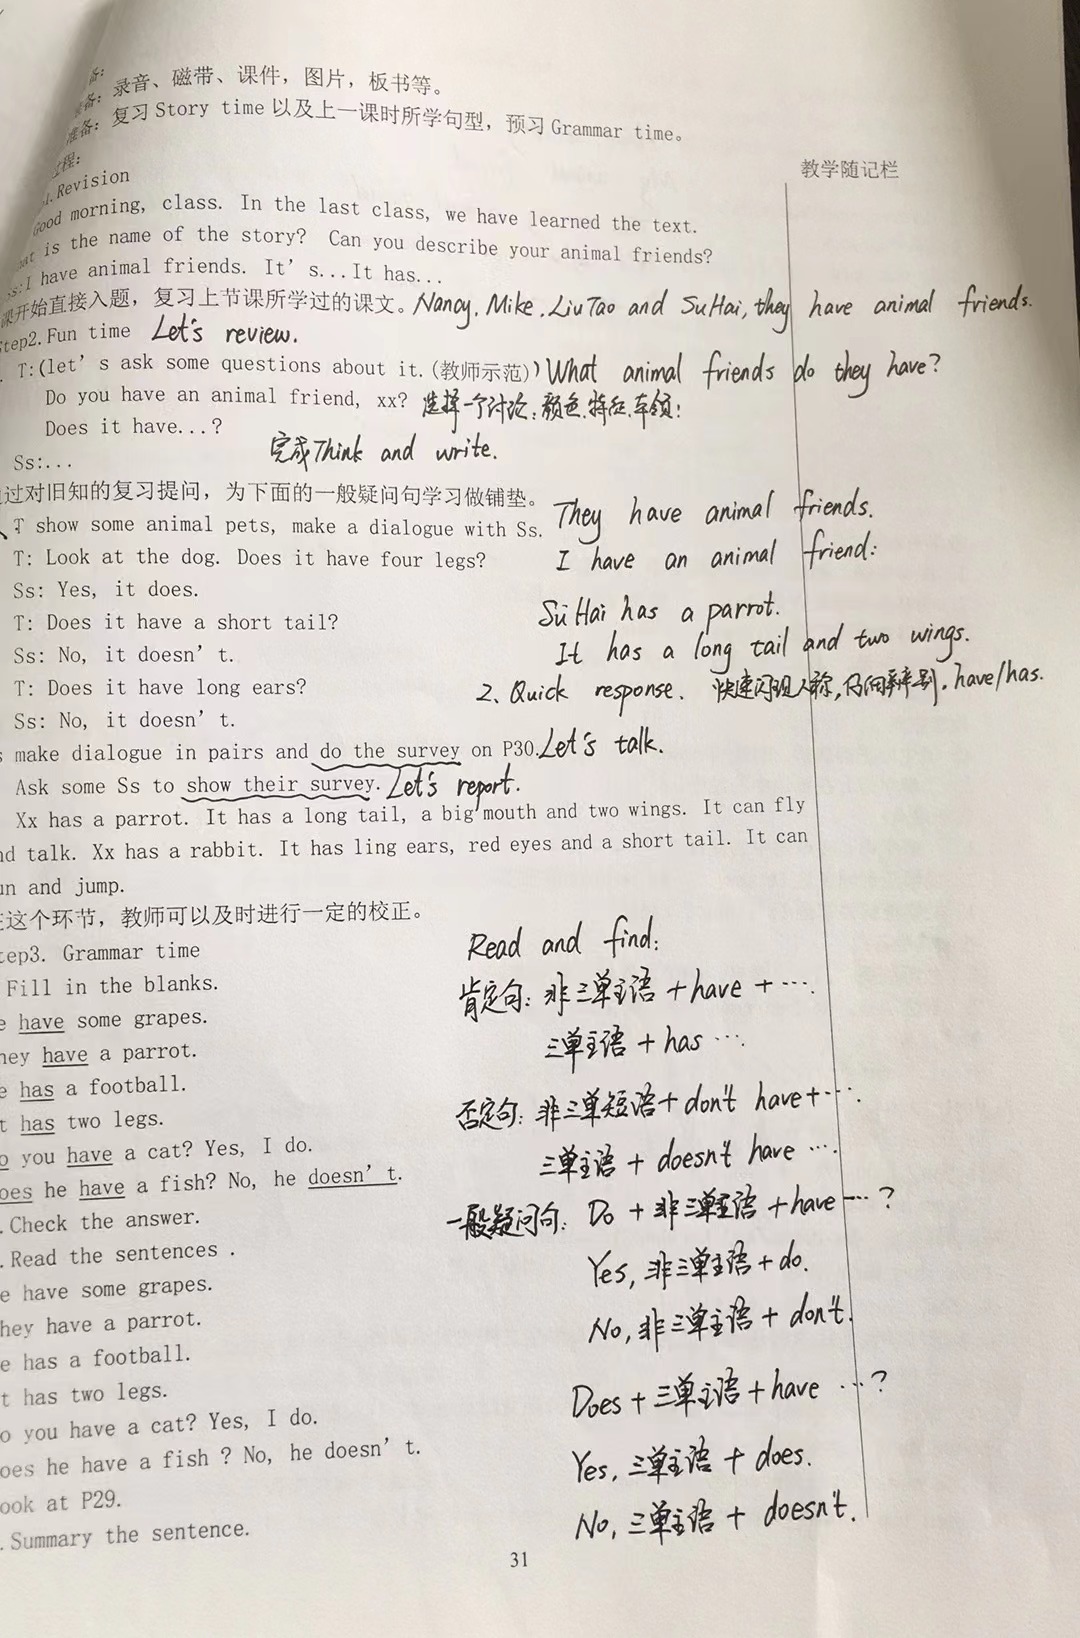 备:
准备: 录音、磁带、课件，图片，板书等。
准备: 复习 Story time 以及上一课时所学句型，预习 Grammar time。
过程:
教学随记栏
1. Revision
Good morning, class. In the last class, we have learned the text.
at is the name of the story? Can you describe your animal friends?
Ss: I have animal friends. It's...It has...
课开始直接入题，复习上节课所学过的课文。Nancy, Mike, Liu Tao and Su Hai, they have animal friends.
Step2. Fun time Let's review.
. T:(let's ask some questions about it.(教师示范)) What animal friends do they have?
Do you have an animal friend, xx? 选择一个讨论: 颜色、特征、本领!
Does it have...?
Ss:... 完成Think and write.
过对旧知的复习提问，为下面的一般疑问句学习做铺垫。
T show some animal pets, make a dialogue with Ss. They have animal friends.
T: Look at the dog. Does it have four legs? I have an animal friend:
Ss: Yes, it does.
T: Does it have a short tail? Su Hai has a parrot.
Ss: No, it doesn't. It has a long tail and two wings.
T: Does it have long ears? 2. Quick response. 快速闪现人称, 辨别, have/has.
Ss: No, it doesn't.
s make dialogue in pairs and do the survey on P30. Let's talk.
Ask some Ss to show their survey. Let's report.
Xx has a parrot. It has a long tail, a big mouth and two wings. It can fly
nd talk. Xx has a rabbit. It has ling ears, red eyes and a short tail. It can
un and jump.
在这个环节，教师可以及时进行一定的校正。
tep3. Grammar time Read and find:
Fill in the blanks. 肯定句: 非三单主语 + have + ….
e have some grapes.
hey have a parrot. 三单主语 + has ….
e has a football.
t has two legs. 否定句: 非三单短语 + don't have + ….
o you have a cat? Yes, I do. 三单主语 + doesn't have ….
oes he have a fish? No, he doesn't.
.Check the answer. 一般疑问句: Do + 非三单主语 + have …?
.Read the sentences . Yes, 非三单主语 + do.
e have some grapes.
hey have a parrot. No, 非三单主语 + don't.
e has a football.
t has two legs. Does + 三单主语 + have …?
o you have a cat? Yes, I do.
oes he have a fish ? No, he doesn't. Yes, 三单主语 + does.
ook at P29.
.Summary the sentence. No, 三单主语 + doesn't.
31